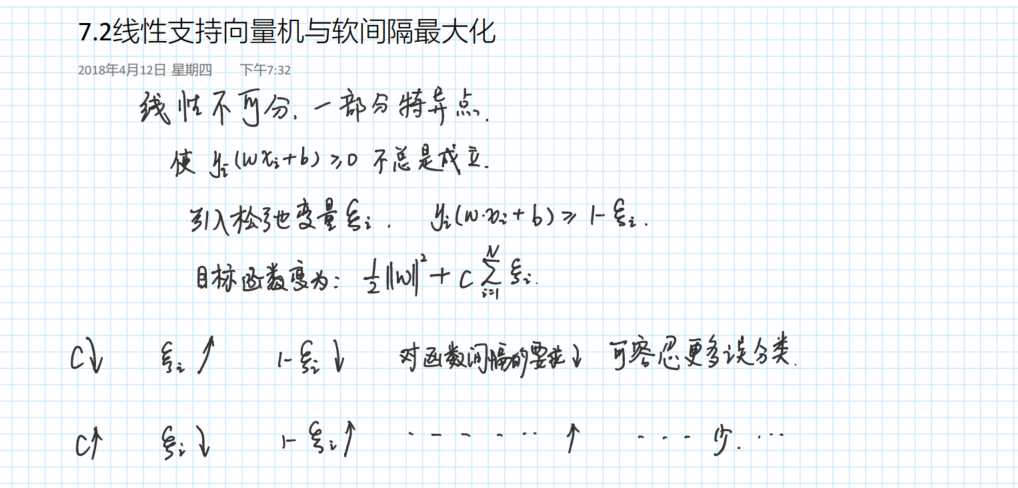 7.2线性支持向量机与软间隔最大化
2018年4月12日 星期四 下午7:32
线性不可分. 一部分特异点.
使 yᵢ(wxᵢ+b)≥0 不总是成立.
引入松弛变量ξᵢ. yᵢ(w·xᵢ+b)≥1-ξᵢ.
目标函数变为: ½||w||²+C∑ᵢ₌₁ᴺξᵢ.
C↓ ξᵢ↑ 1-ξᵢ↓ 对函数间隔的要求↓ 可容忍更多误分类.
C↑ ξᵢ↓ 1-ξᵢ↑ ------↑ ---少.---